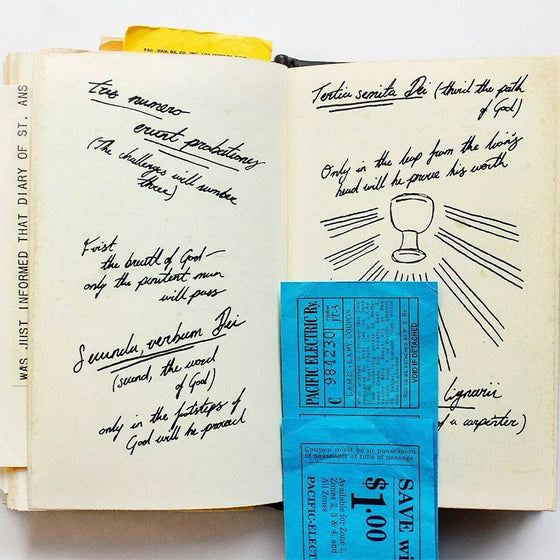 PAC. HAN. BK. CO., INC., LOS ANGELES, CALIF.
WAS JUST INFORMED THAT DIARY OF ST. ANS
tres numero
erunt probationes
(The challenges will number
three)
First
the breath of God—
only the penitent man
will pass
Secunda, verbum Dei
(second, the word
of God)
only in the footsteps of
God will he proceed
Tertia semita Dei (third the path
of God)
Only in the leap from the lion's
head will he prove his worth
lignarii
of a carpenter)
PACIFIC ELECTRIC Ry.
C 984230
FORM
JT-5
L.A.M.C.-L.A.RY. COUPON
VOID IF DETACHED
Coupon must be in possession
of passenger at time of passage.
SAVE wi
$1.00
Available for Zone 1,
Zones 2, 3 & 4, and
All Zones
PACIFIC-ELECT